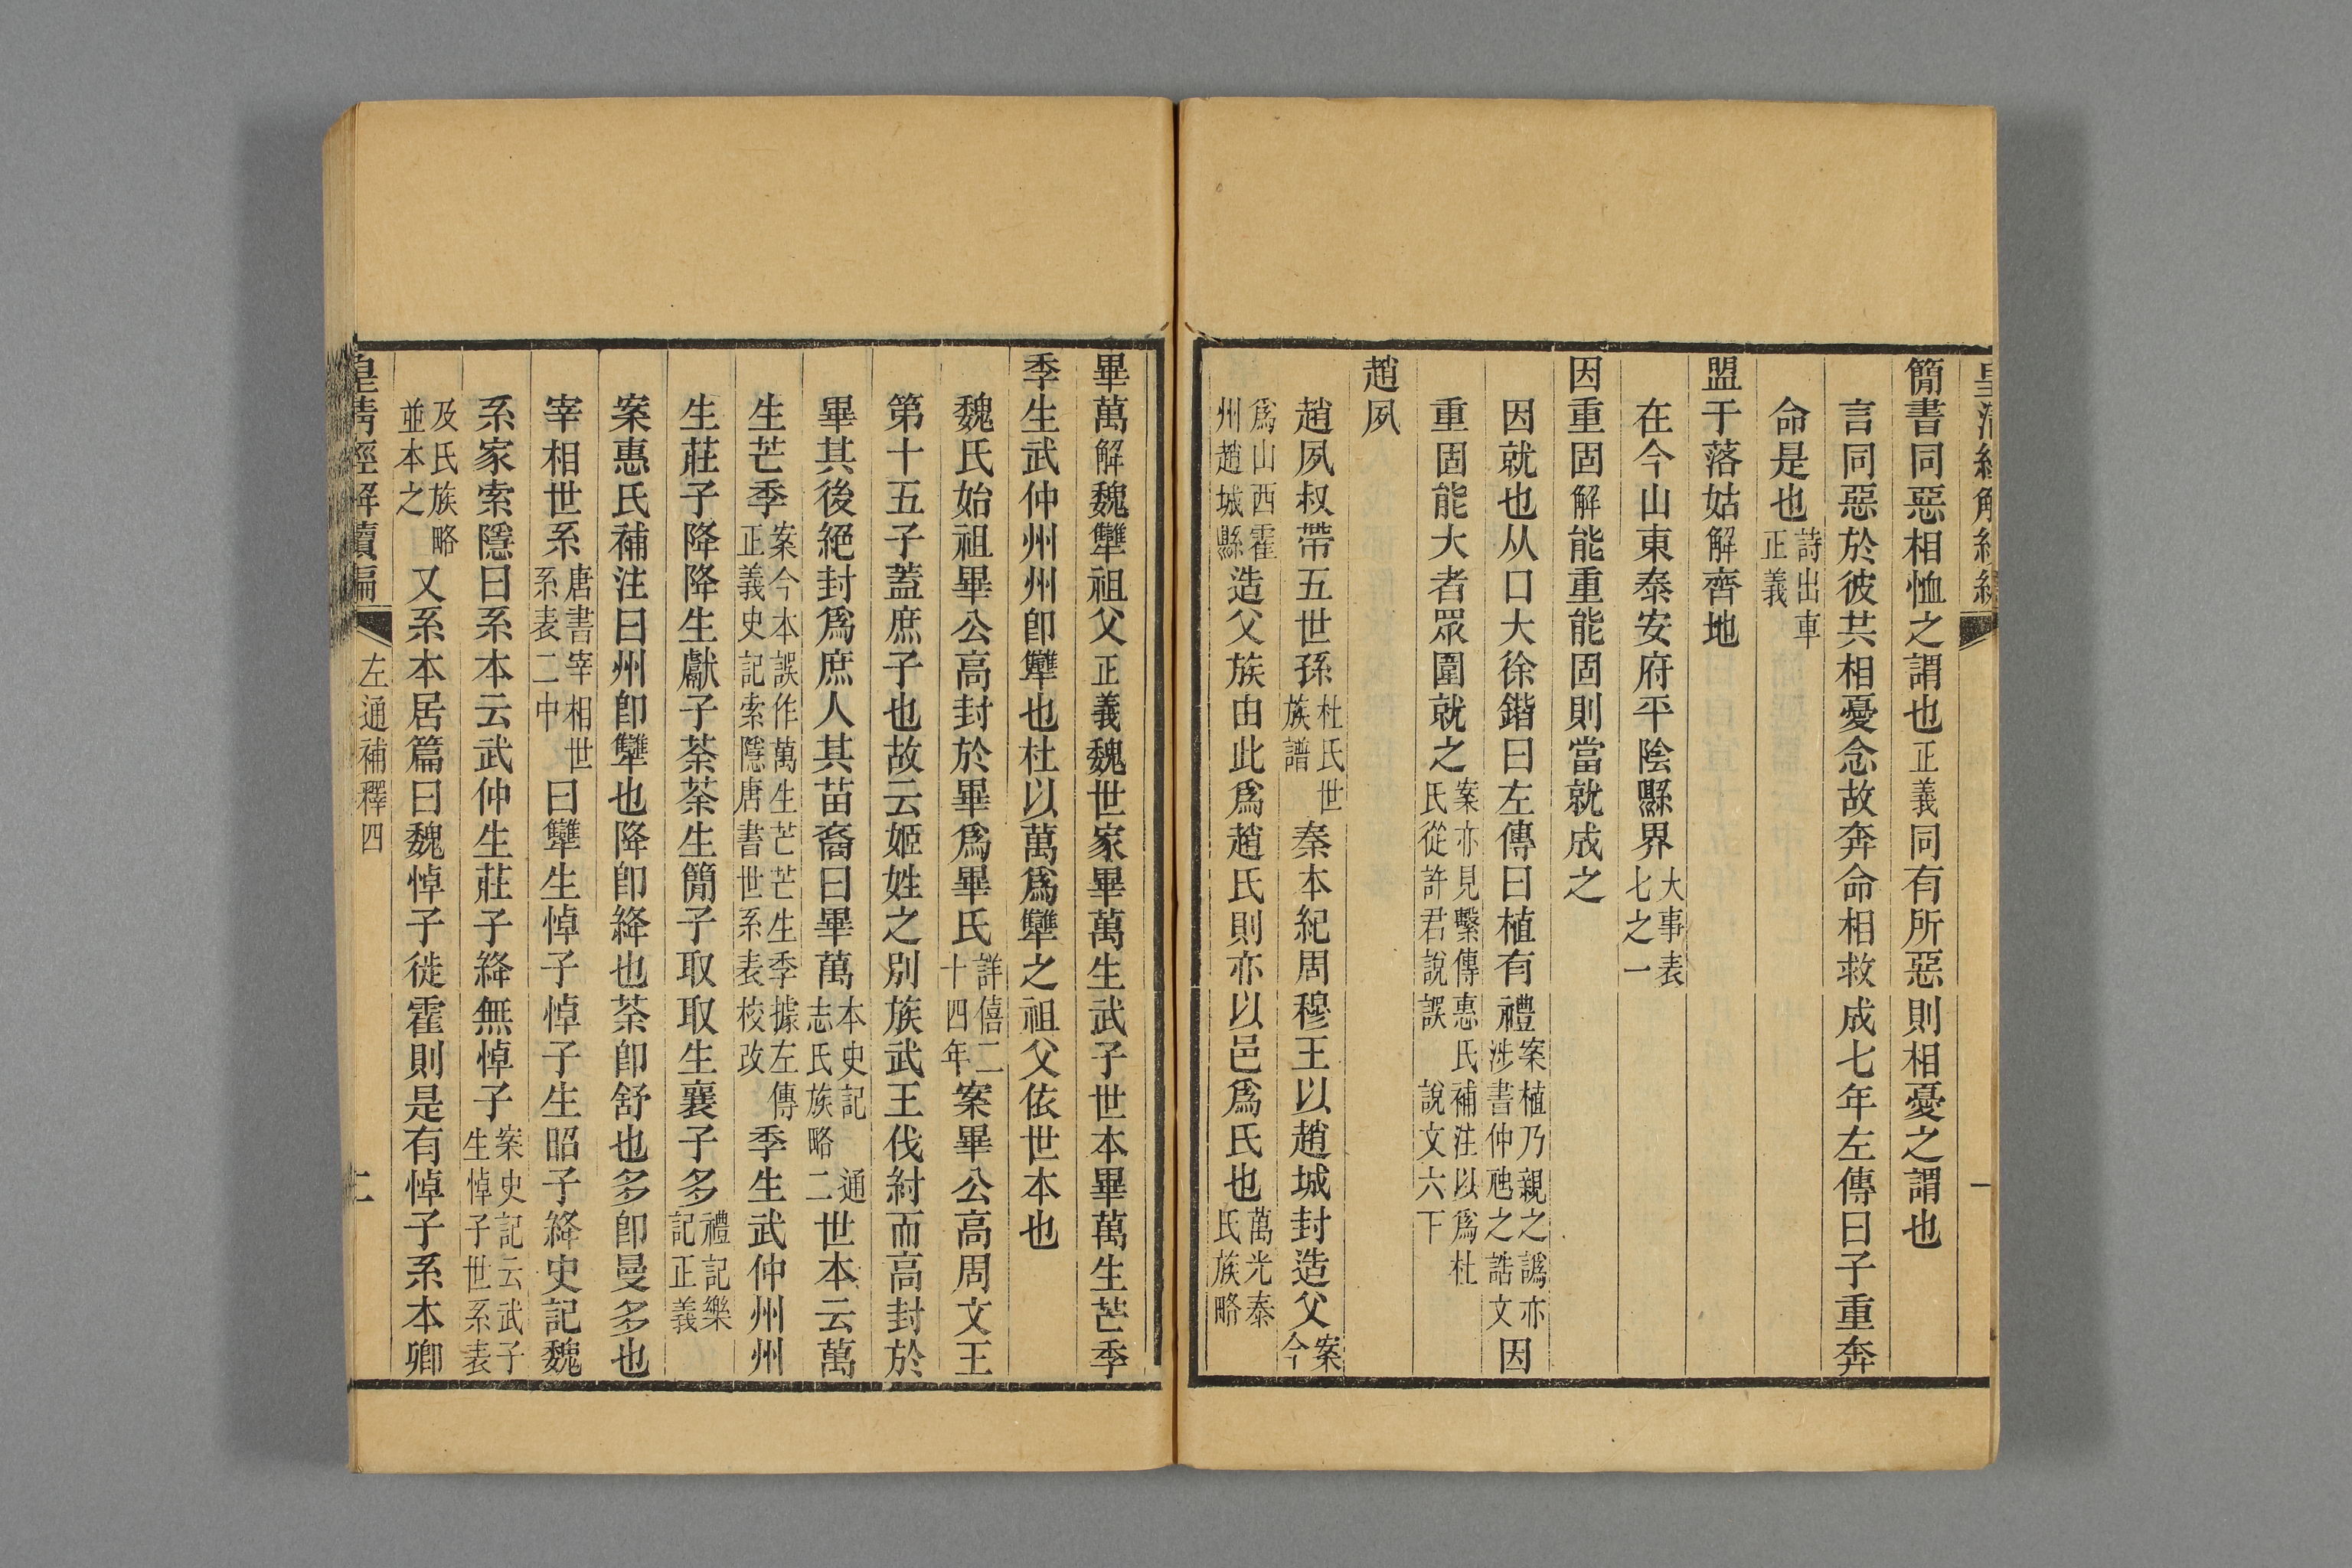 皇清經解續編
一
簡書同惡相恤之謂也正義同有所惡則相憂之謂也
言同惡於彼共相憂念故奔命相救成七年左傳曰子重奔
命是也詩出車正義
盟于落姑解齊地
在今山東泰安府平陰縣界大事表七之一
因重固解能重能固則當就成之
因就也从口大徐鍇曰左傳曰植有禮案植乃親之譌亦涉書仲虺之誥文因
重固能大者眾圍就之案亦見繫傳惠氏補注以爲杜氏從許君說誤說文六下
趙夙
趙夙叔帶五世孫杜氏世族譜秦本紀周穆王以趙城封造父案今
爲山西霍州趙城縣造父族由此爲趙氏則亦以邑爲氏也萬光泰氏族略
畢萬解魏犫祖父正義魏世家畢萬生武子世本畢萬生芒季
季生武仲州州卽犫也杜以萬爲犫之祖父依世本也
魏氏始祖畢公高封於畢爲畢氏詳僖二十四年案畢公高周文王
第十五子蓋庶子也故云姬姓之別族武王伐紂而高封於
畢其後絕封爲庶人其苗裔曰畢萬本史記通志氏族略二世本云萬
生芒季案今本誤作萬生芒芒生季據左傳正義史記索隱唐書世系表校改季生武仲州州
生莊子降降生獻子荼荼生簡子取取生襄子多禮記樂記正義
案惠氏補注曰州卽犫也降卽絳也荼卽舒也多卽曼多也
宰相世系唐書宰相世系表二中曰犫生悼子悼子生昭子絳史記魏
系家索隱曰系本云武仲生莊子絳無悼子案史記云武子生悼子世系表
及氏族略並本之又系本居篇曰魏悼子徙霍則是有悼子系本卿
皇清經解續編
左通補釋四
二